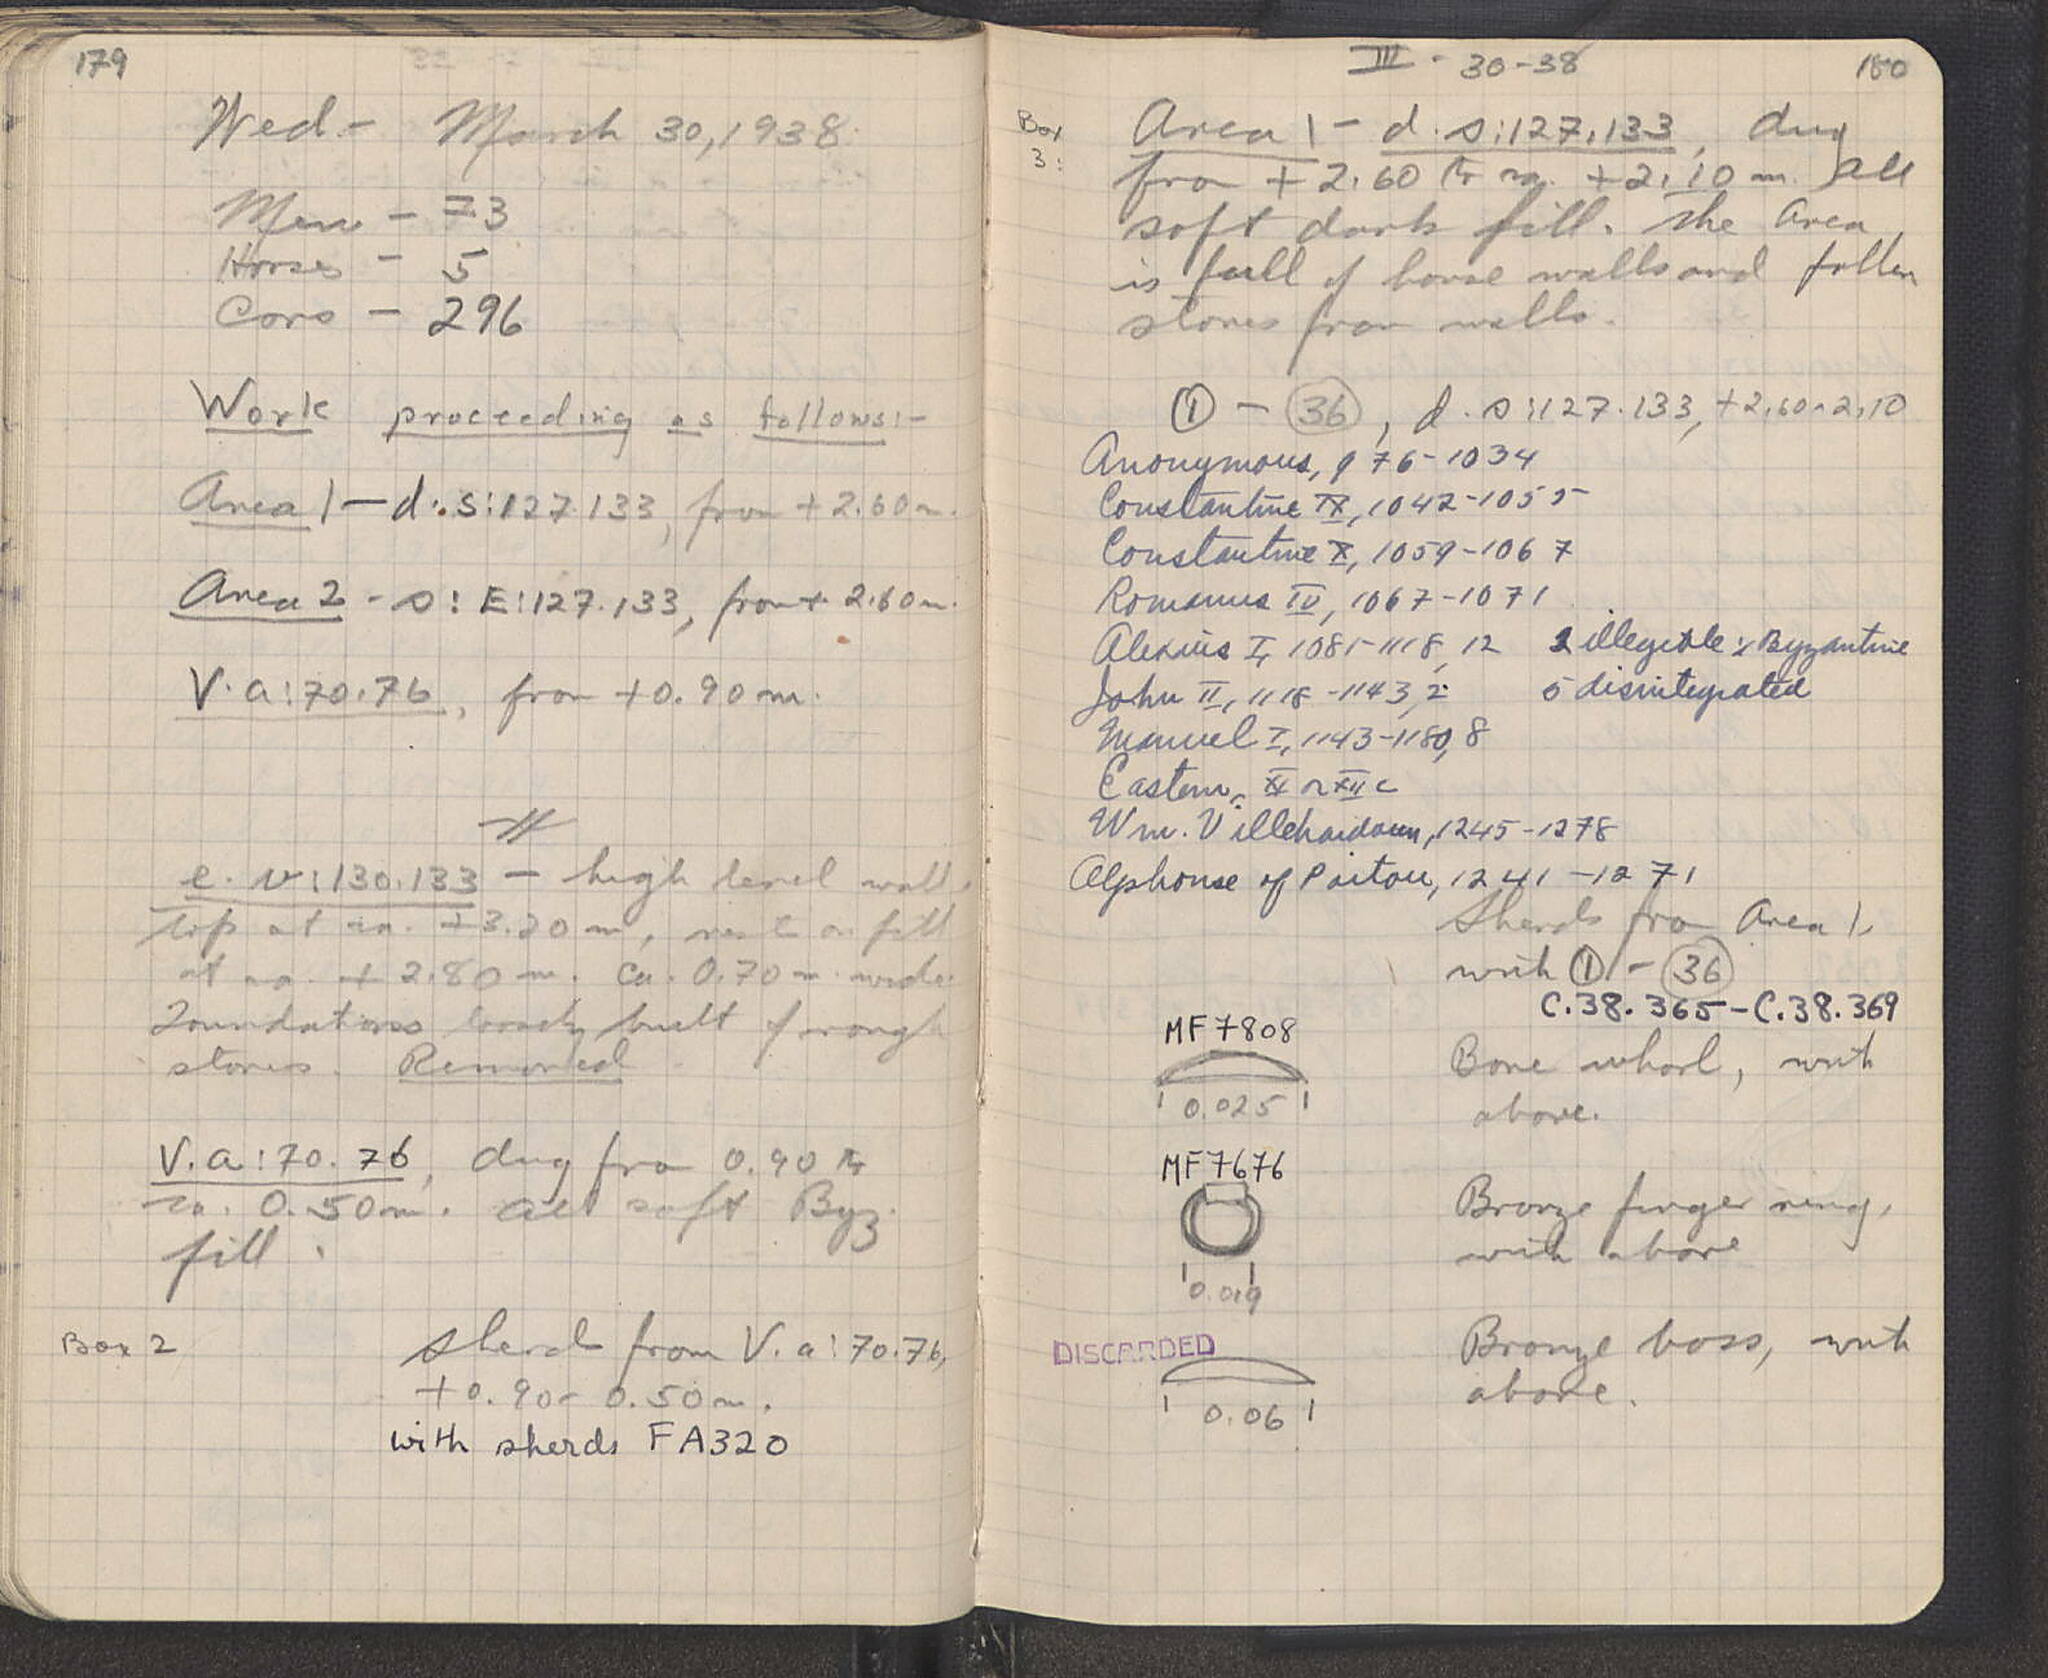 179
Wed - March 30, 1938.
Men - 73
Horses - 5
Cars - 296
Work proceeding as follows:-
Area 1 - d.s:127.133, from +2.60 m.
Area 2 - s:E:127.133, from + 2.60 m.
V.a:70.76, from +0.90 m.
e.v:130.133 - high level wall,
top at ca. +3.20 m, rests on fill
at ca. + 2.80 m. Ca. 0.70 m. wide.
Foundations loosely built of rough
stones. Removed
V.a:70.76, dug from 0.90 to
ca. 0.50 m. All soft Byz.
fill.
Box 2
Sherds from V.a:70.76,
+0.90 - 0.50 m.
with sherds FA320
III - 30-38
180
Box
3:
Area 1 - d.s:127.133, dug
from +2.60 to ca. +2.10 m. All
soft dark fill. The area
is full of house walls and fallen
stones from walls.
① - (36), d.s:127.133, +2.60-2.10
Anonymous, 976-1034
Constantine IX, 1042-1055
Constantine X, 1059-1067
Romanus IV, 1067-1071
Alexius I, 1081-1118, 12 2 illegible: Byzantine
John II, 1118-1143, 2 5 disintegrated
Manuel I, 1143-1180, 8
Eastern, XI or XII c
Wm. Villehardouin, 1245-1278
Alphonse of Poitou, 1241-1271
Sherds from Area 1,
with ① - (36)
C.38.365-C.38.369
MF7808
0.025
Bone whorl, with
above.
MF7676
0.019
Bronze finger ring,
with above
DISCARDED
0.06
Bronze boss, with
above.